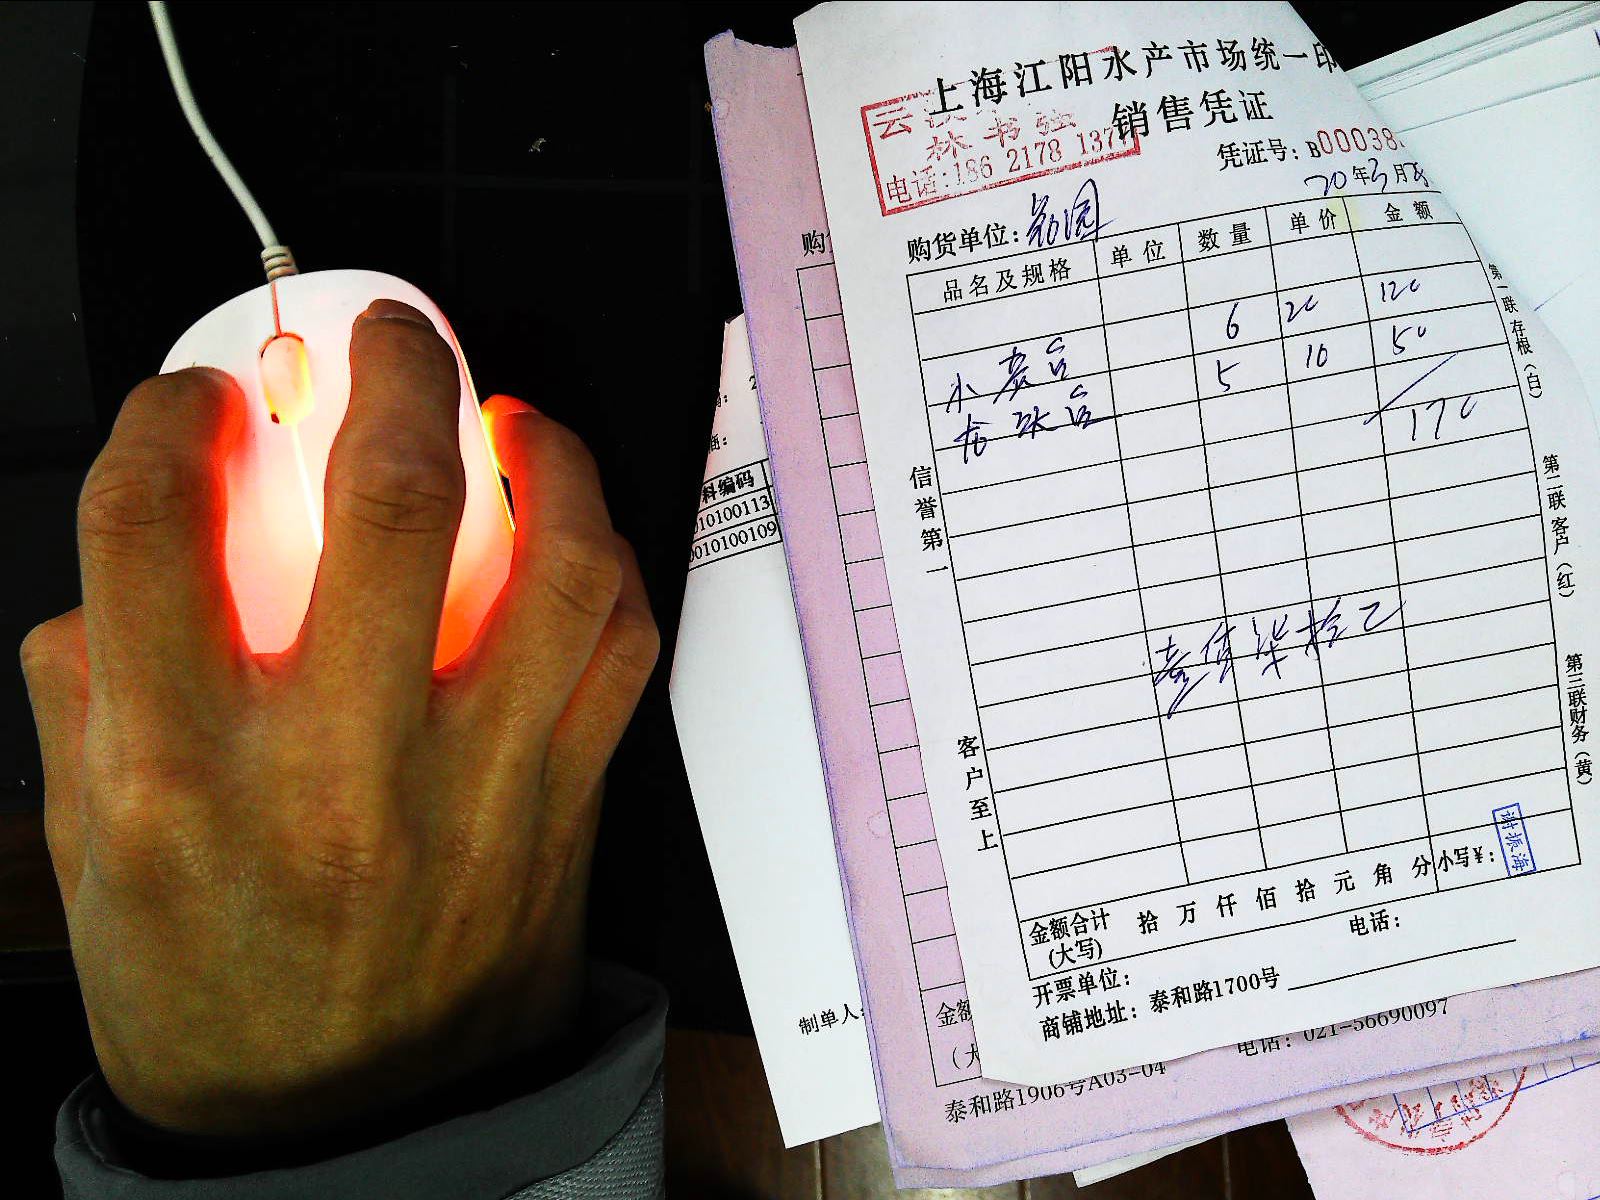 上海江阳水产市场统一印
销售凭证
云
林书强
电话:186 2178 137
凭证号: B000038
20年3月
购货单位:
品名及规格 单位 数量 单价 金额
6 20 120
小
5 10 50
龙
170
壹佰柒拾元
信誉第一
客户至上
第一联存根(白)
第二联客户(红)
第三联财务(黄)
金额合计(大写) 拾 万 仟 佰 拾 元 角 分 小写¥:
谢振海
开票单位:
电话:
商铺地址: 泰和路1700号
购
料编码
010100113
0010100109
制单人:
金额
(大
电话: 021-56690097
泰和路1906号A03-04